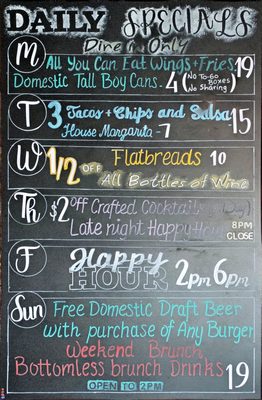 DAILY SPECIALS
Dine in Only
M All You Can Eat Wings + Fries 19
Domestic Tall Boy Cans. 4 (No To-Go Boxes No Sharing)
T 3 Tacos + Chips and Salsa 15
House Margarita - 7
W 1/2 OFF Flatbreads 10
All Bottles of Wine
Th $2 off Crafted Cocktails
Late night Happy Hour 8PM CLOSE
F Happy HOUR 2pm 6pm
Sun Free Domestic Draft Beer
with purchase of Any Burger
Weekend Brunch
Bottomless brunch Drinks 19
OPEN TO 2PM